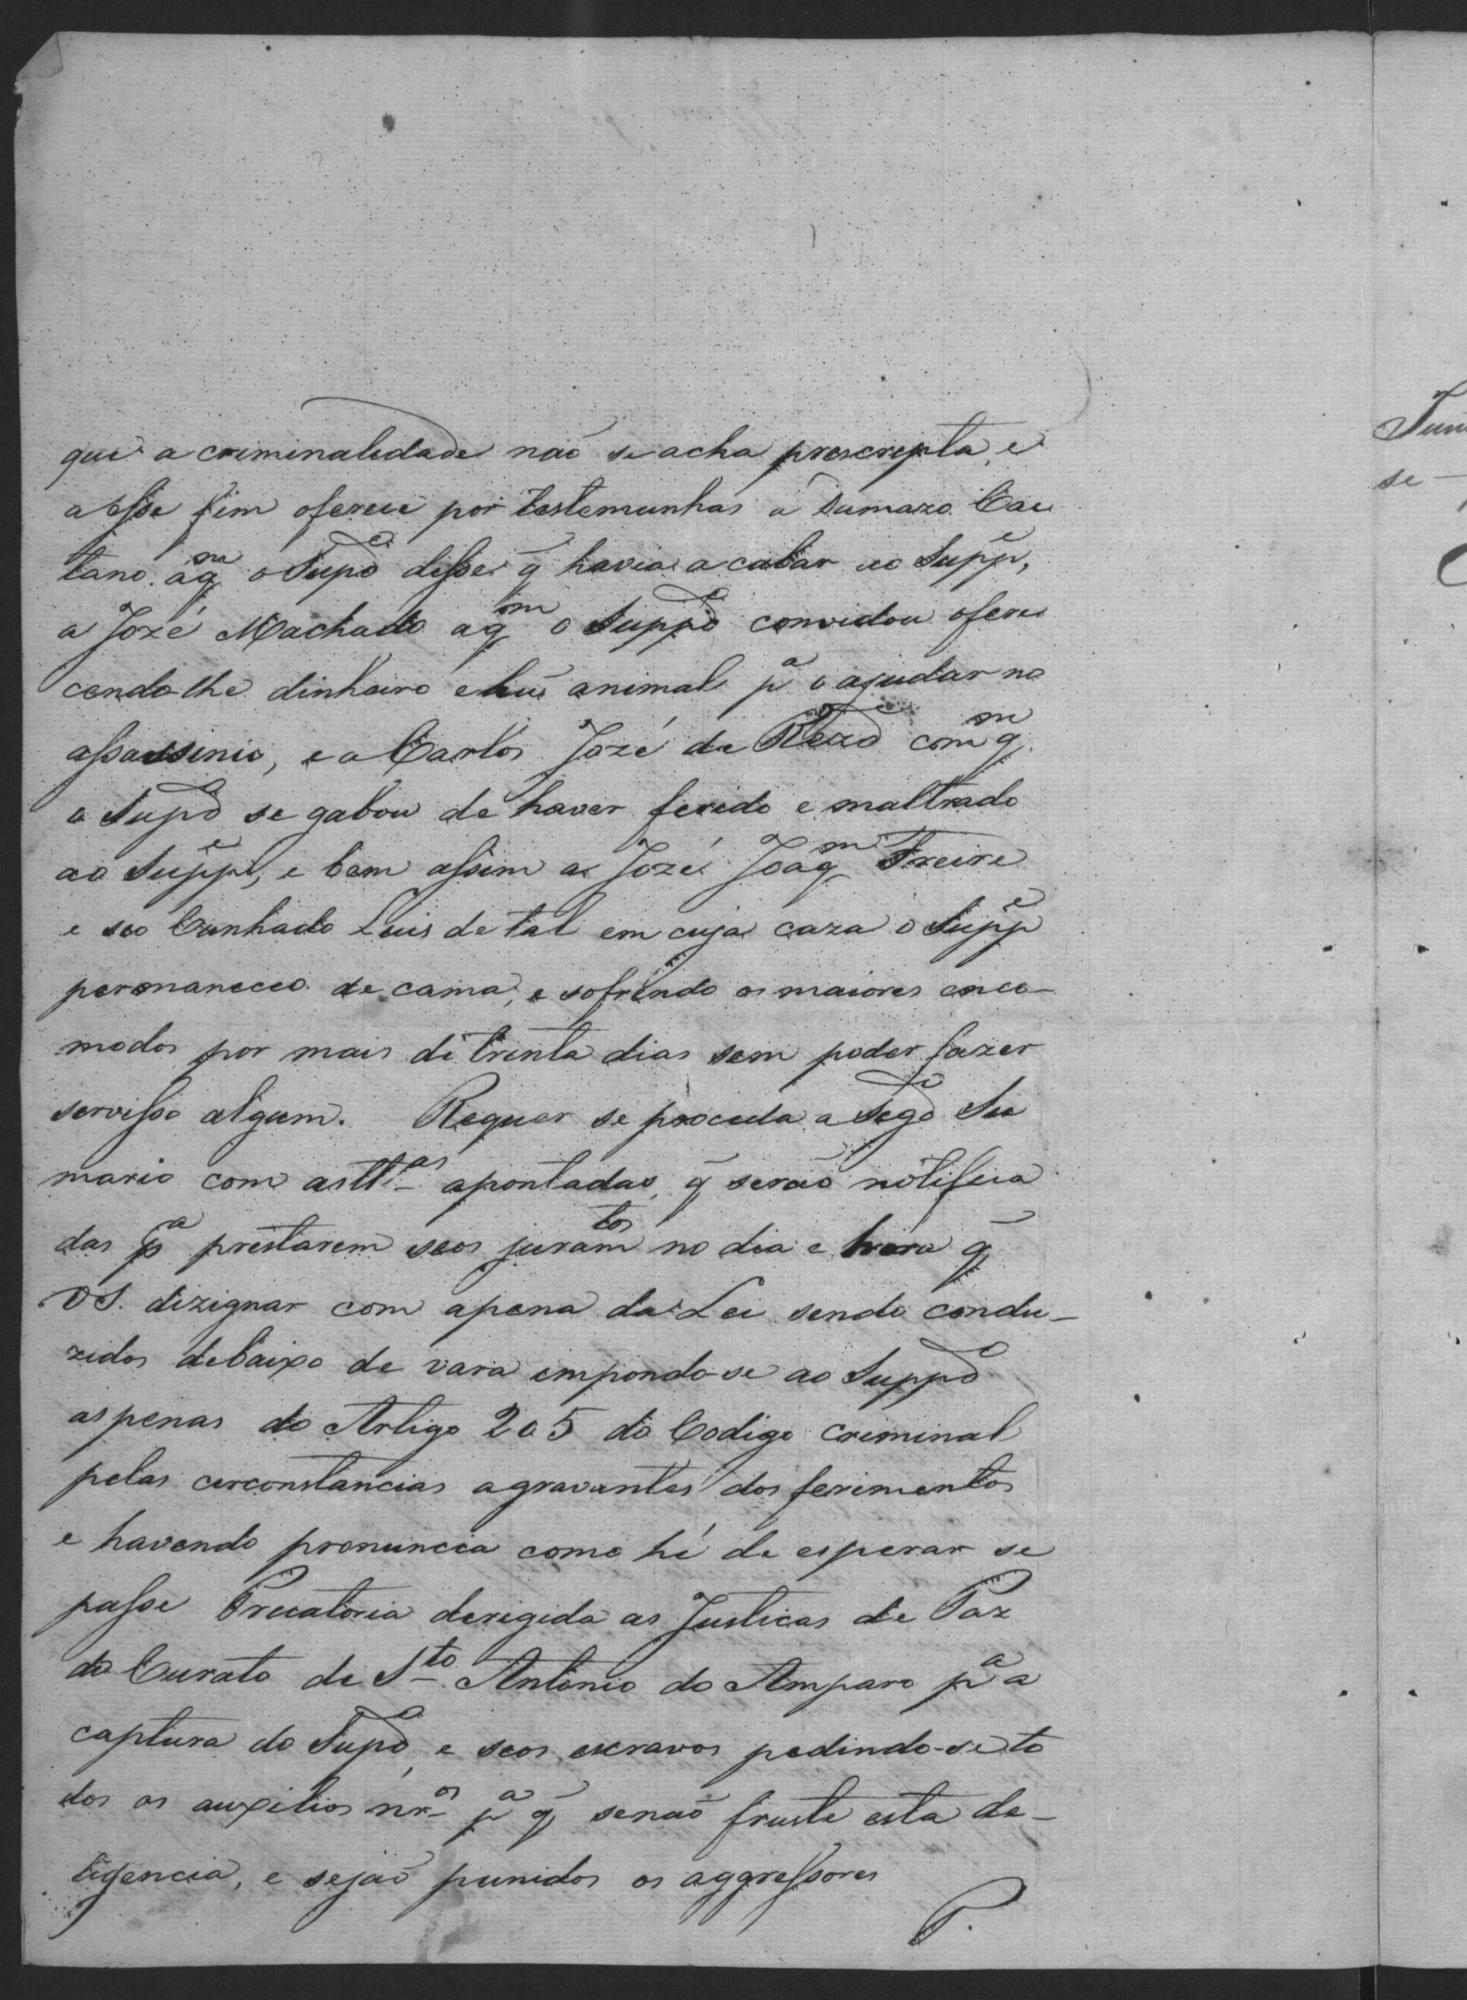 que a criminaledade não se acha prescrepta, e
a esse fim oferece por testemunhas a Damazo Cae
tano aqm o Supdo disse q̃ havia acabar ao Suppe,
a Jozé Machado aqm o Suppdo convidou ofere
cendo-lhe dinheiro e hũ animal pa o ajudar no
assassinio, e a Carlos Jozé de Rezde com qm
o Supdo se gabou de haver ferido e maltrado
ao Suppe, e bem assim a Jozé Joaqm Freire
e seo Cunhado Luis de tal em cuja caza o Suppe
permaneceo de cama, e sofrendo os maiores enco-
modos por mais de trinta dias sem poder fazer
servisso algum. Requer se proceda a Segdo Su
mario com as ttas apontadas, q̃ serão notifica
das pa prestarem seos juramtos no dia e hora q̃
VS. dizignar com apena da Lei sendo condu-
zidos debaixo de vara empondo-se ao Suppdo
as penas do Artigo 205 do Codigo Creminal
pelas circonstancias agravantes dos ferimentos
e havendo pronuncia como hé de esperar se
passe Precatoria derigida as Justicas de Paz
do Curato de Sto Antonio do Amparo pa a
captura do Supdo, e seos escravos pedindo-se to
dos os auxilios nros pa q̃ senão fruste esta de-
ligencia, e sejão punidos os aggressores
P.
Jun
se